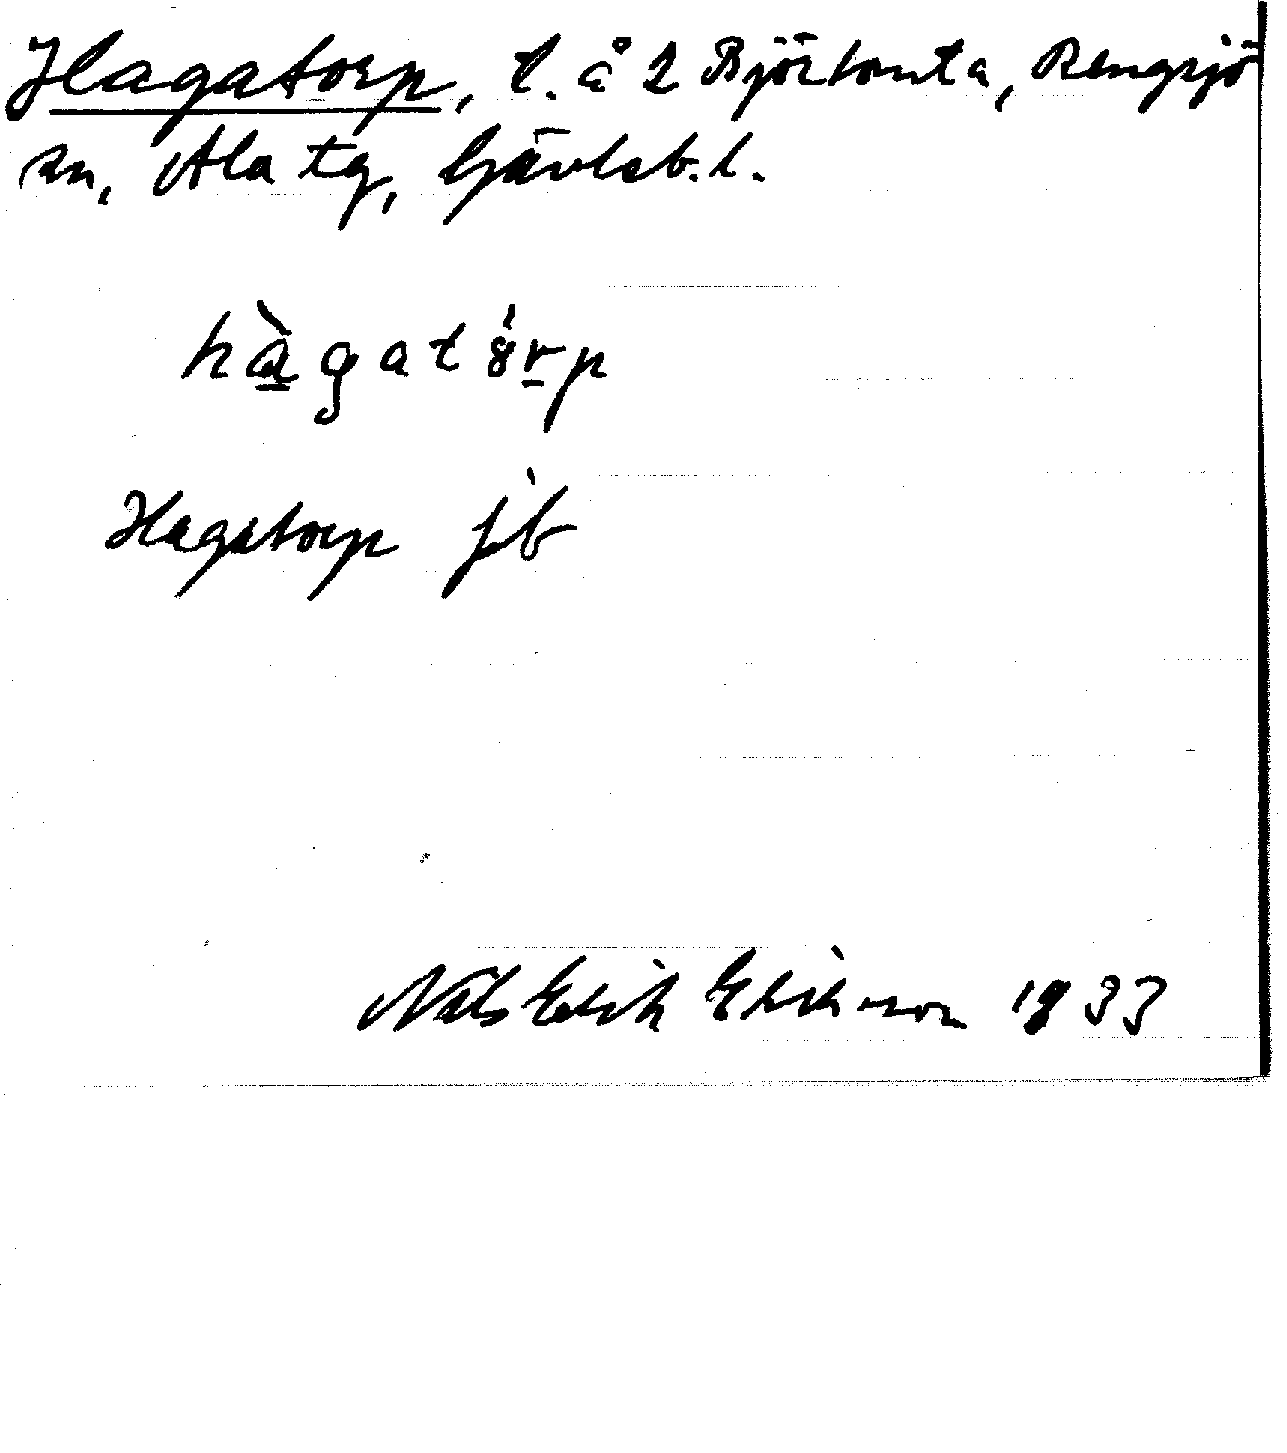 Hagatorp, t. å 2 Björtomta, Rengsjö
sn, Ala tg, Gävleb. l.
hàgatórp
Hagatorp jb
Nils Erik Erikson 1933